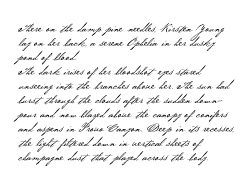 There on the damp pine needles, Kirsten Young
lay on her back, a serene Ophelia in her dusky
pond of blood.
The dark irises of her bloodshot eyes stared
unseeing into the branches above her. The sun had
burst through the clouds after the sudden down-
pour and now blazed above the canopy of conifers
and aspens in Provo Canyon. Deep in its recesses,
the light filtered down in vertical sheets of
champagne dust that played across the body.